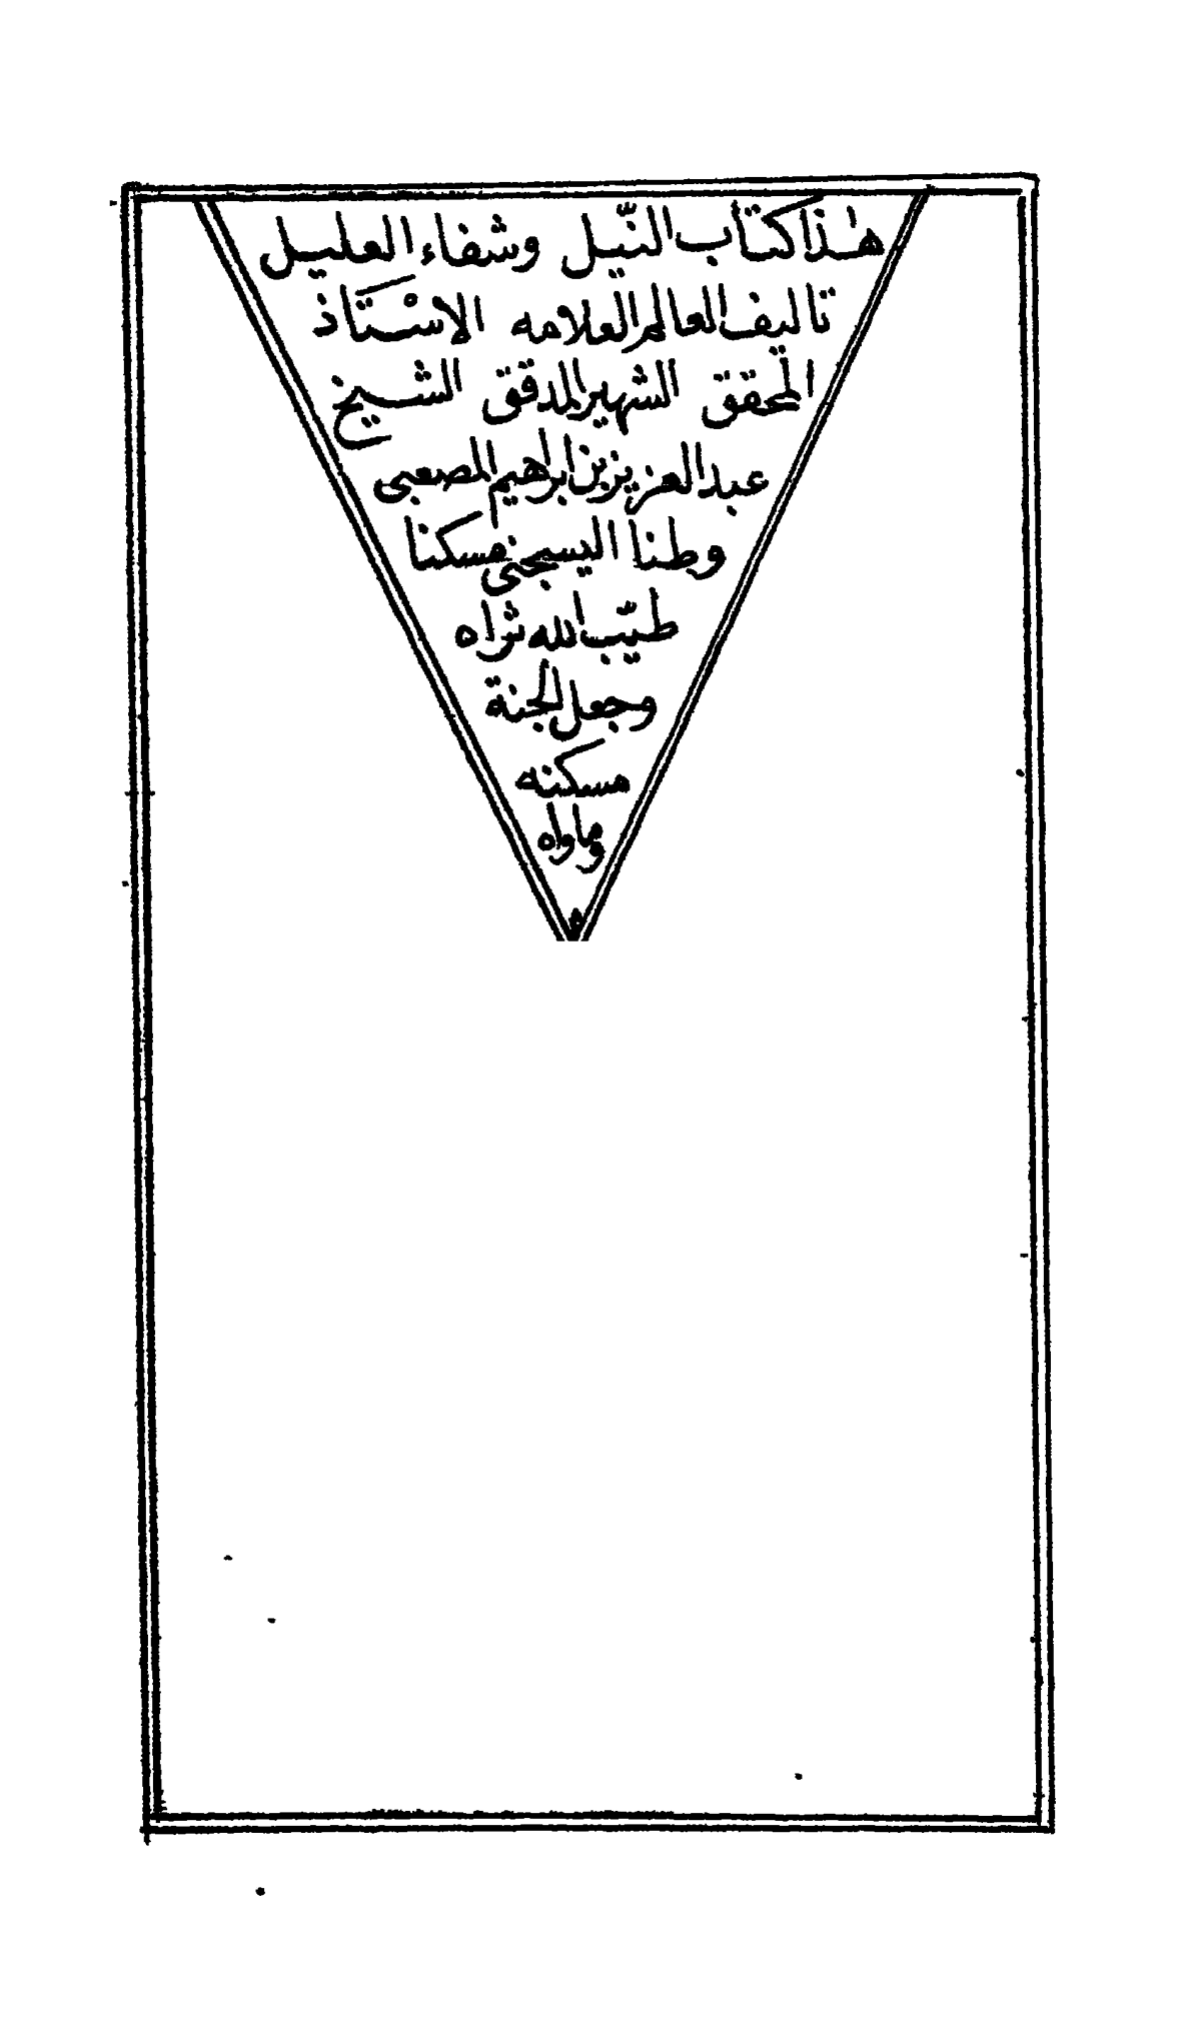 هٰذا كتاب النّيل وشفاء العليل
تاليف العالم العلامه الاسْتاذ
المحقق الشهير المدقق الشيخ
عبد العزيز بن ابراهيم المصعبى
وطنا اليسجنى مسكنا
طيّب الله ثراه
وجعل الجنة
مسكنه
وماواه